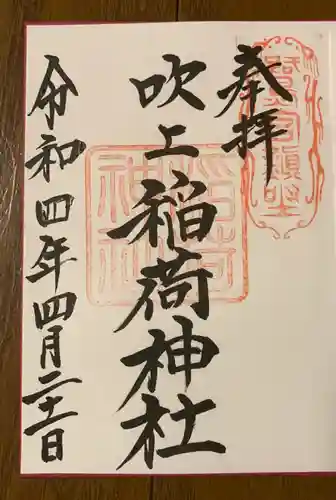 奉拝
吹上稲荷神社
令和四年四月二十一日
稲荷
神社